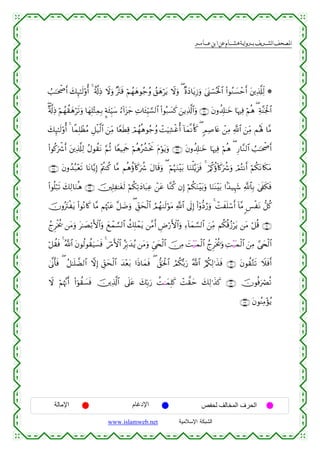 المصحف الشريف برواية هشام عن ابن عامر
۞ لِّلَّذِينَ أَحْسَنُوا۟ ٱلْحُسْنَىٰ وَزِيَادَةٌ ۖ وَلَا يَرْهَقُ وُجُوهَهُمْ قَتَرٌ وَلَا ذِلَّةٌ ۚ أُو۟لَٰٓئِكَ أَصْحَٰبُ
ٱلْجَنَّةِ ۖ هُمْ فِيهَا خَٰلِدُونَ ۝ وَٱلَّذِينَ كَسَبُوا۟ ٱلسَّيِّـَٔاتِ جَزَآءُ سَيِّئَةٍۭ بِمِثْلِهَا وَتَرْهَقُهُمْ ذِلَّةٌ ۖ
مَّا لَهُم مِّنَ ٱللَّهِ مِنْ عَاصِمٍ ۖ كَأَنَّمَآ أُغْشِيَتْ وُجُوهُهُمْ قِطَعًا مِّنَ ٱلَّيْلِ مُظْلِمًا ۚ أُو۟لَٰٓئِكَ
أَصْحَٰبُ ٱلنَّارِ ۖ هُمْ فِيهَا خَٰلِدُونَ ۝ وَيَوْمَ نَحْشُرُهُمْ جَمِيعًا ثُمَّ نَقُولُ لِلَّذِينَ أَشْرَكُوا۟
مَكَانَكُمْ أَنتُمْ وَشُرَكَآؤُكُمْ ۚ فَزَيَّلْنَا بَيْنَهُمْ ۖ وَقَالَ شُرَكَآؤُهُم مَّا كُنتُمْ إِيَّانَا تَعْبُدُونَ ۝
فَكَفَىٰ بِٱللَّهِ شَهِيدًۢا بَيْنَنَا وَبَيْنَكُمْ إِن كُنَّا عَنْ عِبَادَتِكُمْ لَغَٰفِلِينَ ۝ هُنَالِكَ تَبْلُوا۟
كُلُّ نَفْسٍ مَّآ أَسْلَفَتْ ۚ وَرُدُّوٓا۟ إِلَى ٱللَّهِ مَوْلَىٰهُمُ ٱلْحَقِّ ۖ وَضَلَّ عَنْهُم مَّا كَانُوا۟ يَفْتَرُونَ ۝
قُلْ مَن يَرْزُقُكُم مِّنَ ٱلسَّمَآءِ وَٱلْأَرْضِ أَمَّن يَمْلِكُ ٱلسَّمْعَ وَٱلْأَبْصَٰرَ وَمَن يُخْرِجُ
ٱلْحَيَّ مِنَ ٱلْمَيْتِ وَيُخْرِجُ ٱلْمَيْتَ مِنَ ٱلْحَيِّ وَمَن يُدَبِّرُ ٱلْأَمْرَ ۚ فَسَيَقُولُونَ ٱللَّهُ ۚ فَقُلْ
أَفَلَا تَتَّقُونَ ۝ فَذَٰلِكُمُ ٱللَّهُ رَبُّكُمُ ٱلْحَقُّ ۖ فَمَاذَا بَعْدَ ٱلْحَقِّ إِلَّا ٱلضَّلَٰلُ ۖ فَأَنَّىٰ
تُصْرَفُونَ ۝ كَذَٰلِكَ حَقَّتْ كَلِمَٰتُ رَبِّكَ عَلَى ٱلَّذِينَ فَسَقُوٓا۟ أَنَّهُمْ لَا
يُؤْمِنُونَ ۝
الحرف المخالف لحفص الإدغام الإمالة
الشبكة الإسلامية www.islamweb.net